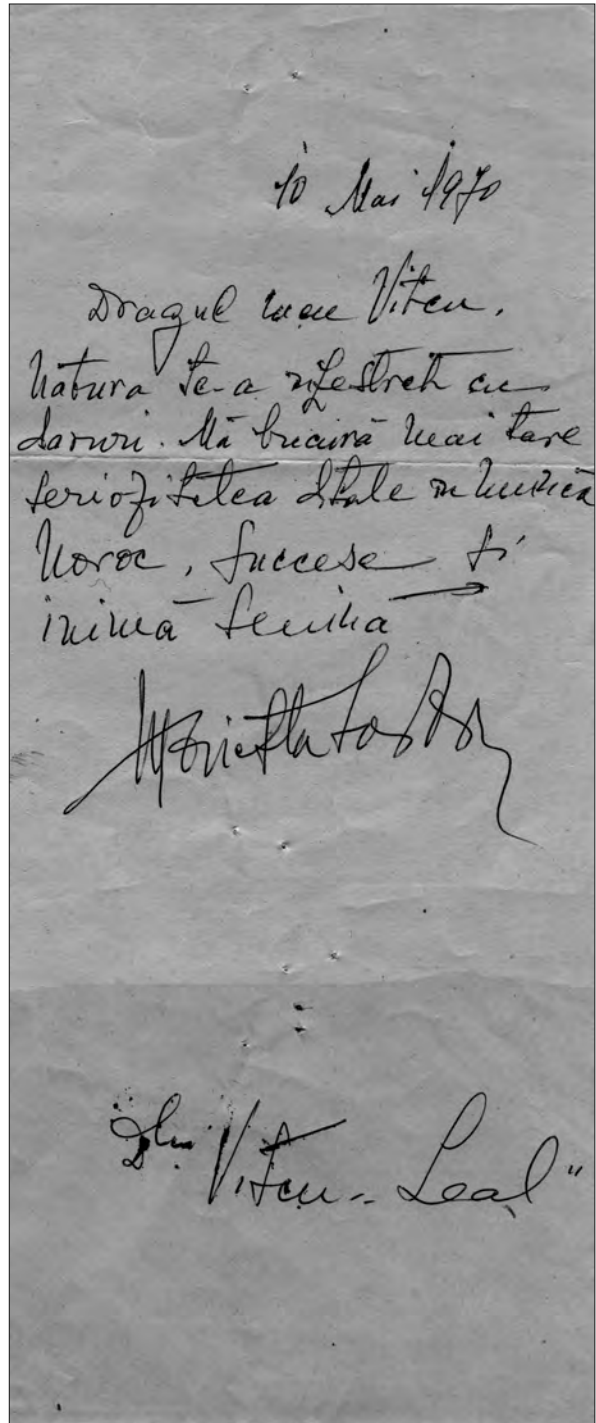 10 Mai 1970
Dragul meu Vitcu,
Natura te-a înzestrat cu
daruri. Mă bucură mai tare
seriozitatea dtale în muzică
Noroc, succese și
inimă senină
Dlui Vitcu - Leal"